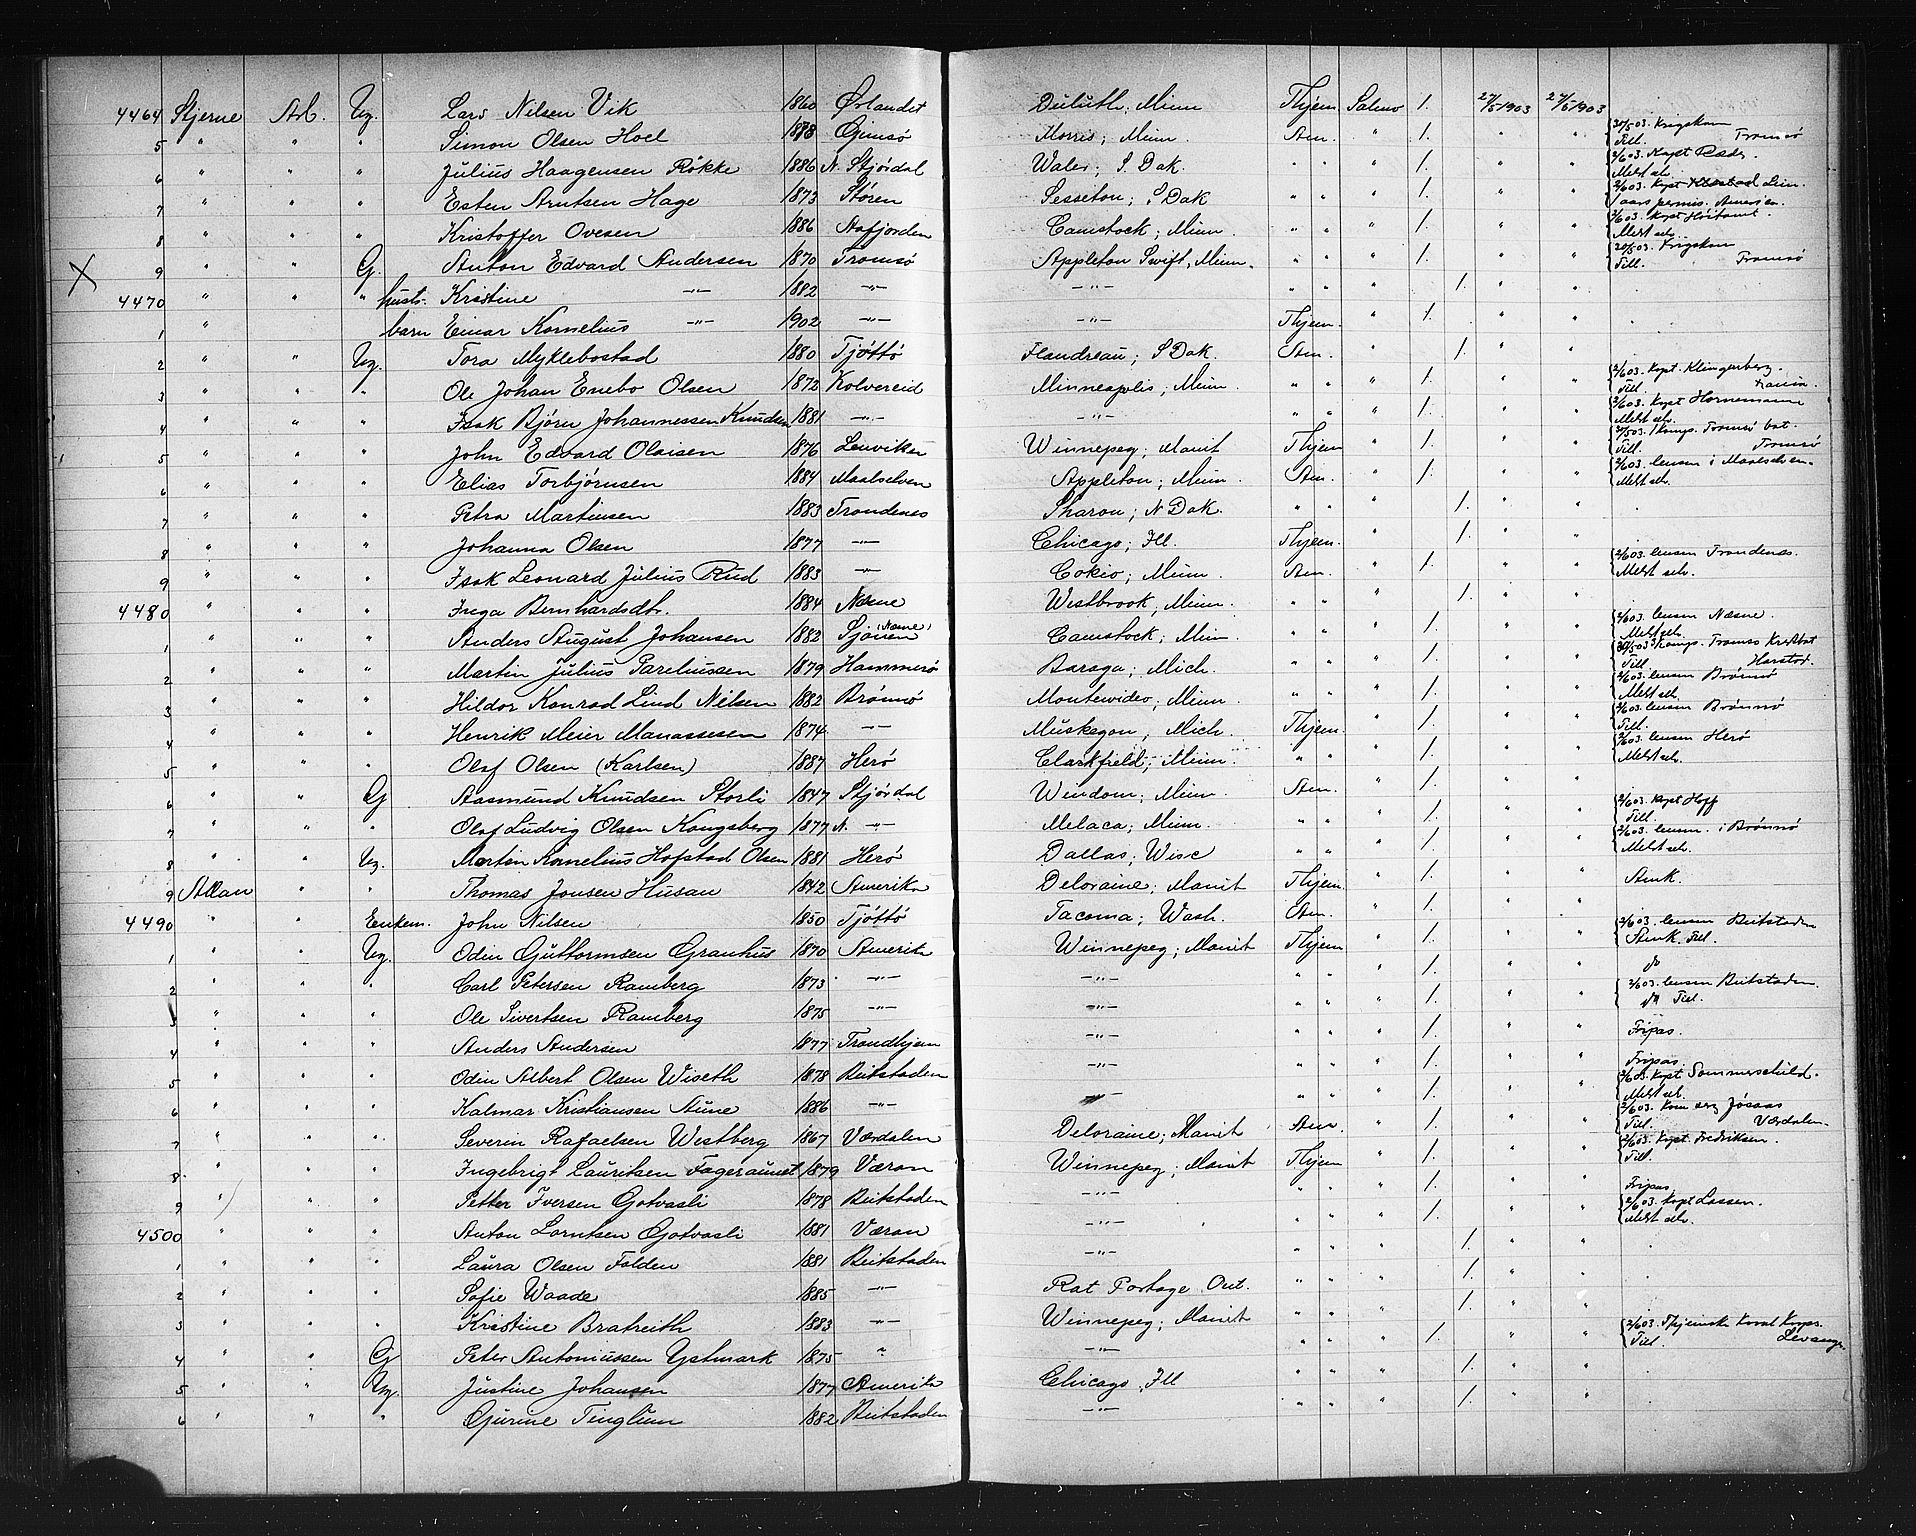 4464 Stjerne Arb. Ug. Lars Nilsen Vik 1860 Ørlandet Duluth; Minn Thjem Salmo 1. 27/5 1903 27/5 1903
5 " " " Simon Olsen Hoel 1878 Gimsø Morris; Minn. Am. " 1. " " 30/5 03. Krigskom Till. Tromsø
6 " " " Julius Haagensen Røkke 1886 N. Stjørdal S. Dak. " " " 1. " " 2/6 03. Kapt Melst selv.
7 " " " Esten Arntsen Hage 1873 Støren Sesseton; S Dak " " " 1. " " 2/6 03. Kapt permis.
8 " " " Kristoffer Ovesen 1886 Aafjorden Camstock; Minn. " " " 1. " " 2/6 03. Kapt Melst selv.
X 9 " " G. Anton Edvard Andersen 1870 Tromsø Appleton Swift, Minn. " " " 1. " " Till. Tromsø
4470 " " " hustr. Kristine —"— 1882 —"— —"— " " " 1. " "
1 " barn Einar Kornelius —"— 1902 —"— —"— Thjem. " 1. " "
2 " " Ug. Tora Myklebostad 1880 Tjøttø Flandreau; S Dak. Am. " 1. " "
3 " " " Ole Johan Enebo Olsen 1872 Kolvereid Minneapolis, Minn. " " " 1. " " 2/6 03. Kapt. Klingenberg. Till.
4 " " " Isak Bjørn Johannessen Knudsen 1881 —"— —"— " " " 1. " " 2/6 03. Kapt Hornemann Melst selv.
5 " " " John Edvard Olaisen 1876 Lenviken Winnepeg; Manit Thjem " 1. " " 30/5 03. Komp. Tromsø bat. Till. Tromsø
6 " " " Elias Torbjørnsen 1884 Maalselven Appleton; Minn. Am. " 1. " " 2/6 03. lensm i Maalselven. Melst selv.
7 " " " Petra Martinsen 1883 Trondenes Sharon; N Dak. " " " 1. " "
8 " " " Johanna Olsen 1877 —"— Chicago; Ill. Thjem. " 1. " "
9 " " " Isak Leonard Julius Rud 1883 —"— Cokio; Minn. Am. " 1. " " 2/6 03. lensm Trondenæs. Melst selv.
4480 " " " Inga Bernhardsdtr. 1884 Næsne Westbrook, Minn. " " " 1. " "
1 " " " Anders August Johansen 1882 Sjonen (Næsne) Camstock; Minn. " " " 1. " " 2/6 03. lensm Næsne. Melst selv.
2 " " " Martin Julius Pareliussen 1879 Hammerø Baraga; Mich. " " " 1. " " 30/5 03 Komp. Tromsø Till. Harstad.
3 " " " Hildor Konrad Lind Nilsen 1882 Brønnø Montevideo, Minn. " " " 1. " " 2/6 03. lensm Brønnø Melst selv.
4 " " " Henrik Meier Manassesen 1874 —"— Muskegon, Mich Thjem. " 1. " " 2/6 03. lensm Brønnø Till.
5 " " " Olaf Olsen (Karlsen) 1887 Herø Clarkfield; Minn. " " " 1. " " 2/6 03. lensm Herø Melst selv.
6 " " G Aasmund Knudsen Storli 1847 Stjørdal Windom; Minn. Am. " 1. " "
7 " " " Olaf Ludvig Olsen Kongsberg 1877 N. —"— Melaca; Minn. " " " 1. " " 2/6 03. Kapt Hoff Till.
8 " " Ug. Martin Kornelius Hofstad Olsen 1881 Herø Dallas; Wisc " " " 1. " " 2/6 03. lensm. i Brønnø Melst selv.
9 Allan " " Thomas Jonsen Husan 1842 Amerika Deloraine; Manit Thjem. " 1. " " Amk.
4490 " " Enkem. John Nilsen 1850 Tjøttø Tacoma; Wash. Am. " 1. " " 2/6 03. lensm Beitstaden
1 " " Ug. Odin Guttormsen Granhus 1870 Amerika Winnepeg; Manit Thjem " 1. " " Amk. Till.
2 " " " Carl Petersen Ramberg 1873 —"— —"— " " " 1. " " do
3 " " " Ole Sivertsen Ramberg 1875 —"— —"— " " " 1. " " 2/6 03. lensm Beitstaden. Till.
4 " " " Anders Andersen 1877 Trondhjem —"— " " " 1. " " Fripas.
5 " " " Odin Albert Olsen Wiseth 1878 Beitstaden —"— " " " 1. " " Fripas
6 " " " Kalmar Kristiansen Aune 1886 —"— —"— " " " 1. " " 2/6 03. Kapt Sommerschild. Melst selv.
7 " " " Severin Rafaelsen Westberg 1867 Værdalen Deloraine; Manit Am. " 1. " " 2/6 03. Kom Till. Værdalen.
8 " " " Ingebrigt Lauritsen Fageraunet 1879 Væran Winnepeg; Manit Thjem " 1. " " 2/6 03. Kapt. Fredriksen. Till.
9 " " " Petter Iversen Gotvasli 1878 Beitstaden —"— " " " 1. " " Fripas
4500 " " " Anton Lorntsen Gotvasli 1881 Væran —"— " " " 1. " " 2/6 03. Kapt Lassen. Melst selv.
1 " " " Laura Olsen Folden 1881 Beitstaden —"— " " " 1. " "
2 " " " Sofie Waade 1885 —"— Rat Portage, Ont. " " " 1. " "
3 " " " Kristine Bratreith 1883 —"— Winnepeg; Manit " " " 1. " "
4 " " G Peter Antoniussen Ystmark 1875 " —"— " " " 1. " " 2/6 03. Thjemske Till. Levanger
5 " " Ug. Justine Johansen 1877 Amerika Chicago, Ill " " " 1. " "
6 " " " Gurine Tinglum 1882 Beitstaden —"— " " " 1. " "